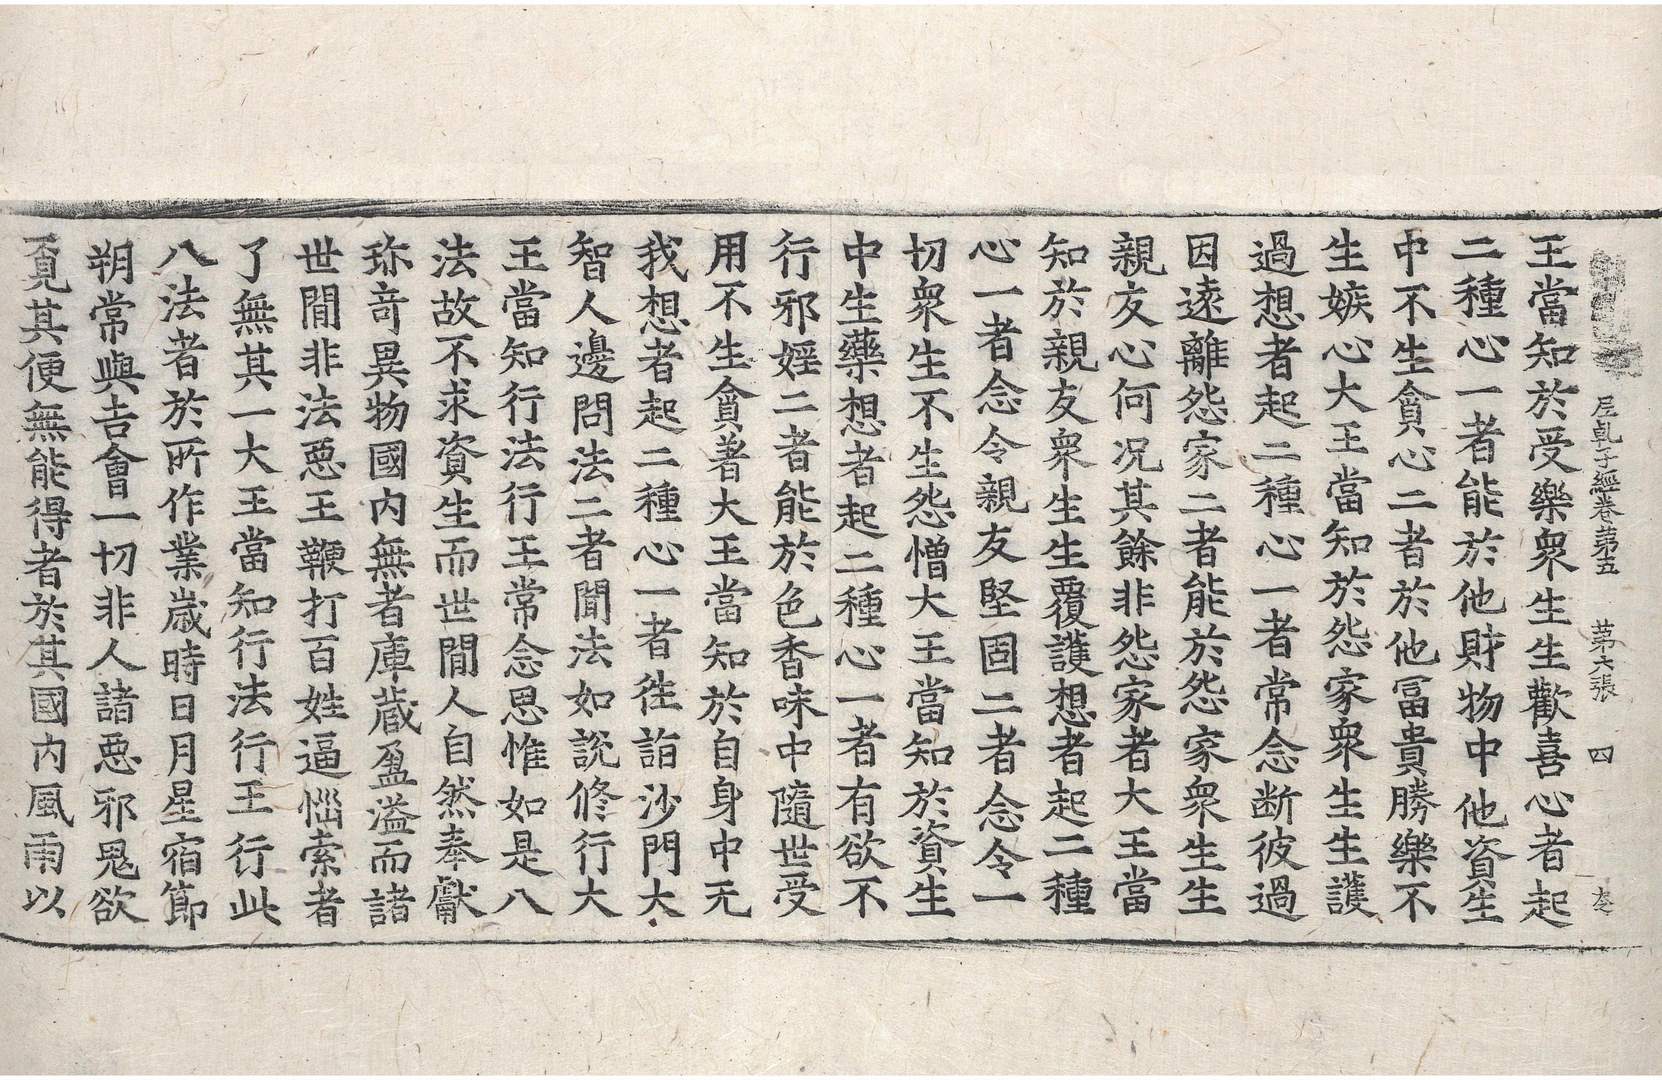 尼乹子經卷第五　第六張　四
王當知於受樂衆生生歡喜心者起
二種心一者能於他財物中他資生
中不生貪心二者於他冨貴勝樂不
生嫉心大王當知於怨家衆生生護
過想者起二種心一者常念断彼過
因遠離怨家二者能於怨家衆生生
親友心何况其餘非怨家者大王當
知於親友衆生生覆護想者起二種
心一者念令親友堅固二者念令一
切衆生不生怨憎大王當知於資生
中生藥想者起二種心一者有欲不
行邪婬二者能於色香味中隨世受
用不生貪著大王當知於自身中无
我想者起二種心一者徃詣沙門大
智人邊問法二者聞法如說修行大
王當知行法行王常念思惟如是八
法故不求資生而世間人自然奉獻
珎竒異物國内無者庫蔵盈溢而諸
世間非法惡王鞭打百姓逼惱索者
了無其一大王當知行法行王行此
八法者於所作業歳時日月星宿節
朔常與吉會一切非人諸惡邪鬼欲
覓其便無能得者於其國内風雨以